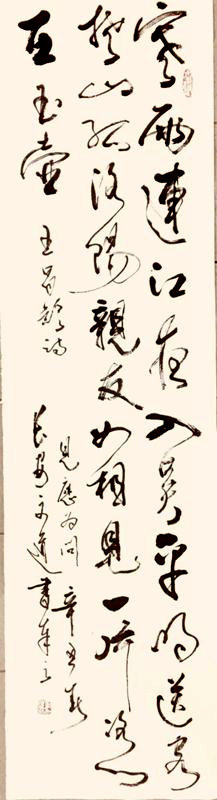 寒雨連江夜入吳平明送客
楚山孤洛陽親友如相見一片冰心
在玉壺 王昌齡詩
見應為問 辛丑春
長安文道書